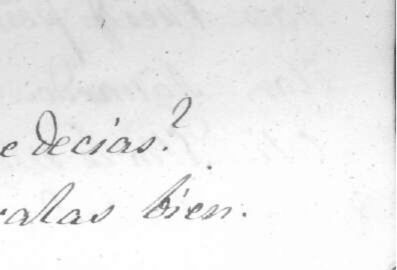 e decias?
ratas bien.